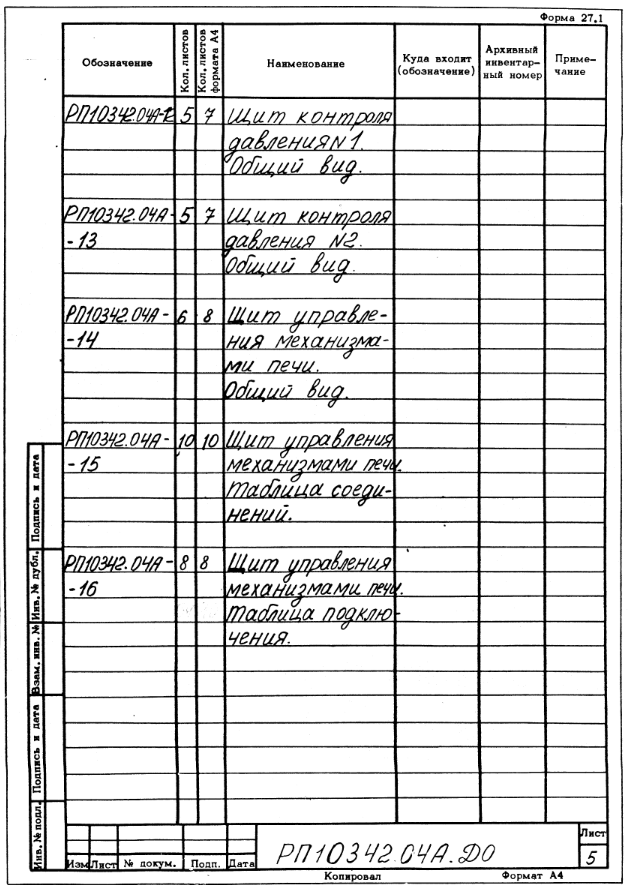 Форма 27.1
Обозначение Кол. листов Кол. листов формата А4 Наименование Куда входит (обозначение) Архивный инвентар-ный номер Приме-чание
РП10342.04А-12 5 7 Щит контроля
давления N1.
Общий вид.
РП10342.04А- 5 7 Щит контроля
-13 давления N2.
Общий вид.
РП10342.04А- 6 8 Щит управле-
-14 ния механизма-
ми печи.
Общий вид.
РП10342.04А- 10 10 Щит управления
-15 механизмами печи.
Таблица соеди-
нений.
РП10342.04А- 8 8 Щит управления
-16 механизмами печи.
Таблица подклю-
чения.
Инв. № подл. Подпись и дата Взам. инв. № Инв. № дубл. Подпись и дата
Изм Лист № докум. Подп. Дата
РП10342.04А.ДО
Лист
5
Копировал Формат А4